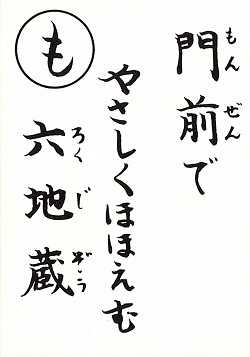 門前で
もんぜん
やさしくほほえむ
六地蔵
ろくじぞう
も